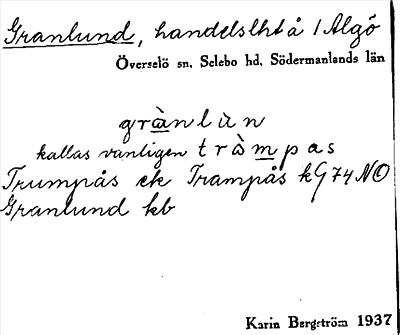 Granlund, handelslht å 1 Algö
Överselö sn. Selebo hd. Södermanlands län
grὰnlὺn
kallas vanligen trὰmpas
Trumpås ek Trampås kG 74 NO
Granlund kb
Karin Bergström 1937